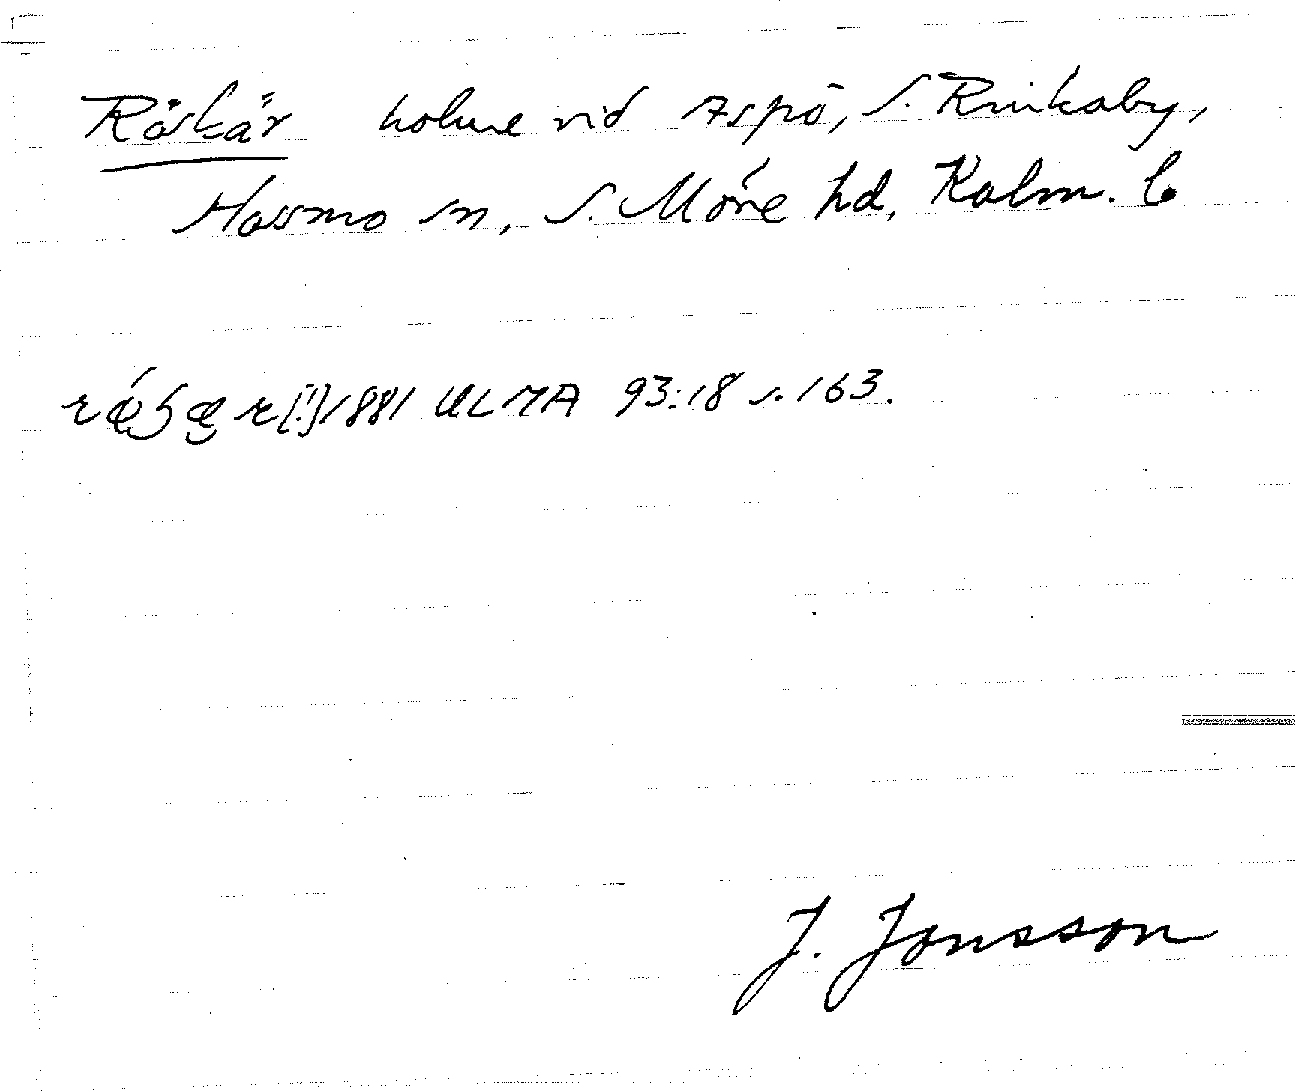 Röskär holme vid Aspö, S. Rinkaby,
Hossmo sn, S. Möre hd, Kalm. l.
1881 ULMA 93:18 s. 163.
J. Jonsson